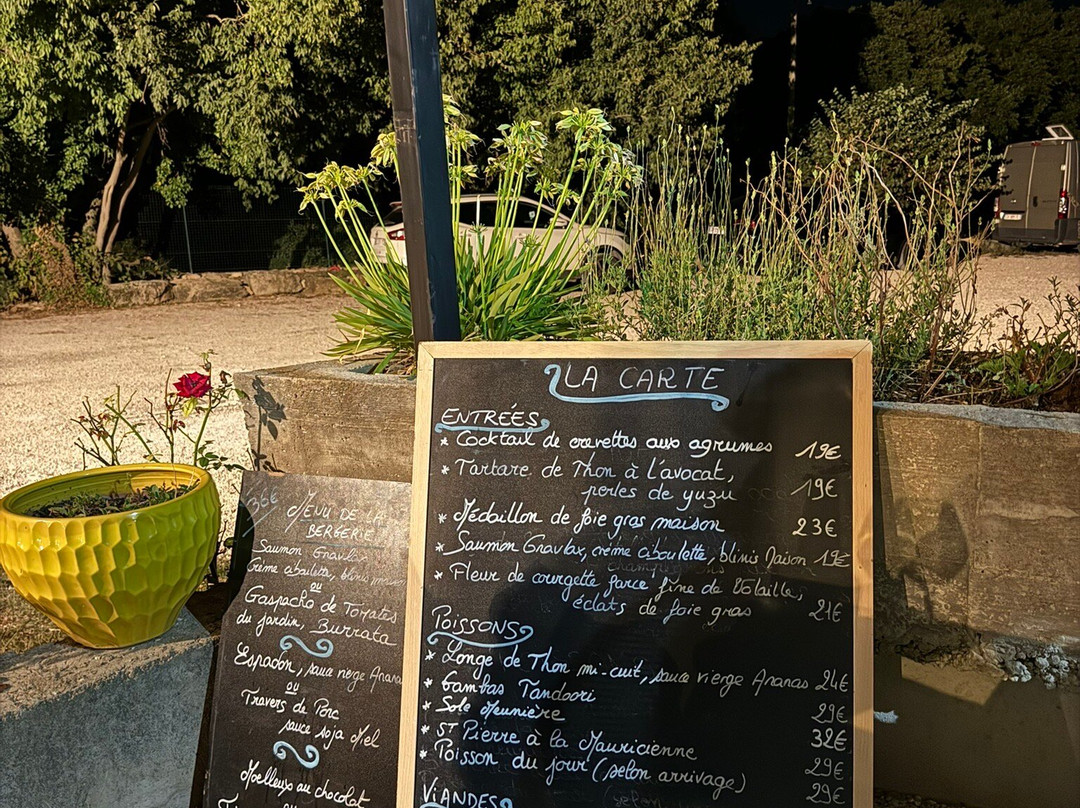 LA CARTE
ENTRÉES
* Cocktail de crevettes aux agrumes 19€
* Tartare de Thon à l'avocat,
perles de yuzu 19€
* Médaillon de foie gras maison 23€
* Saumon Gravlax, crème ciboulette, blinis Maison 19€
* Fleur de courgette farce fine de Volaille,
éclats de foie gras 21€
POISSONS
* Longe de Thon mi-cuit, sauce vierge Ananas 24€
* Gambas Tandoori 29€
* Sole Meunière 32€
* ST Pierre à la Mauricienne 29€
* Poisson du jour (selon arrivage) 29€
VIANDES
36€
MENU DE LA
BERGERIE
Saumon Gravlax
Crème ciboulette, blinis maison
ou
Gaspacho de Tomates
du jardin, Burrata
Espadon, sauce vierge Anana
ou
Travers de Porc
sauce soja Miel
Moelleux au chocolat
ou